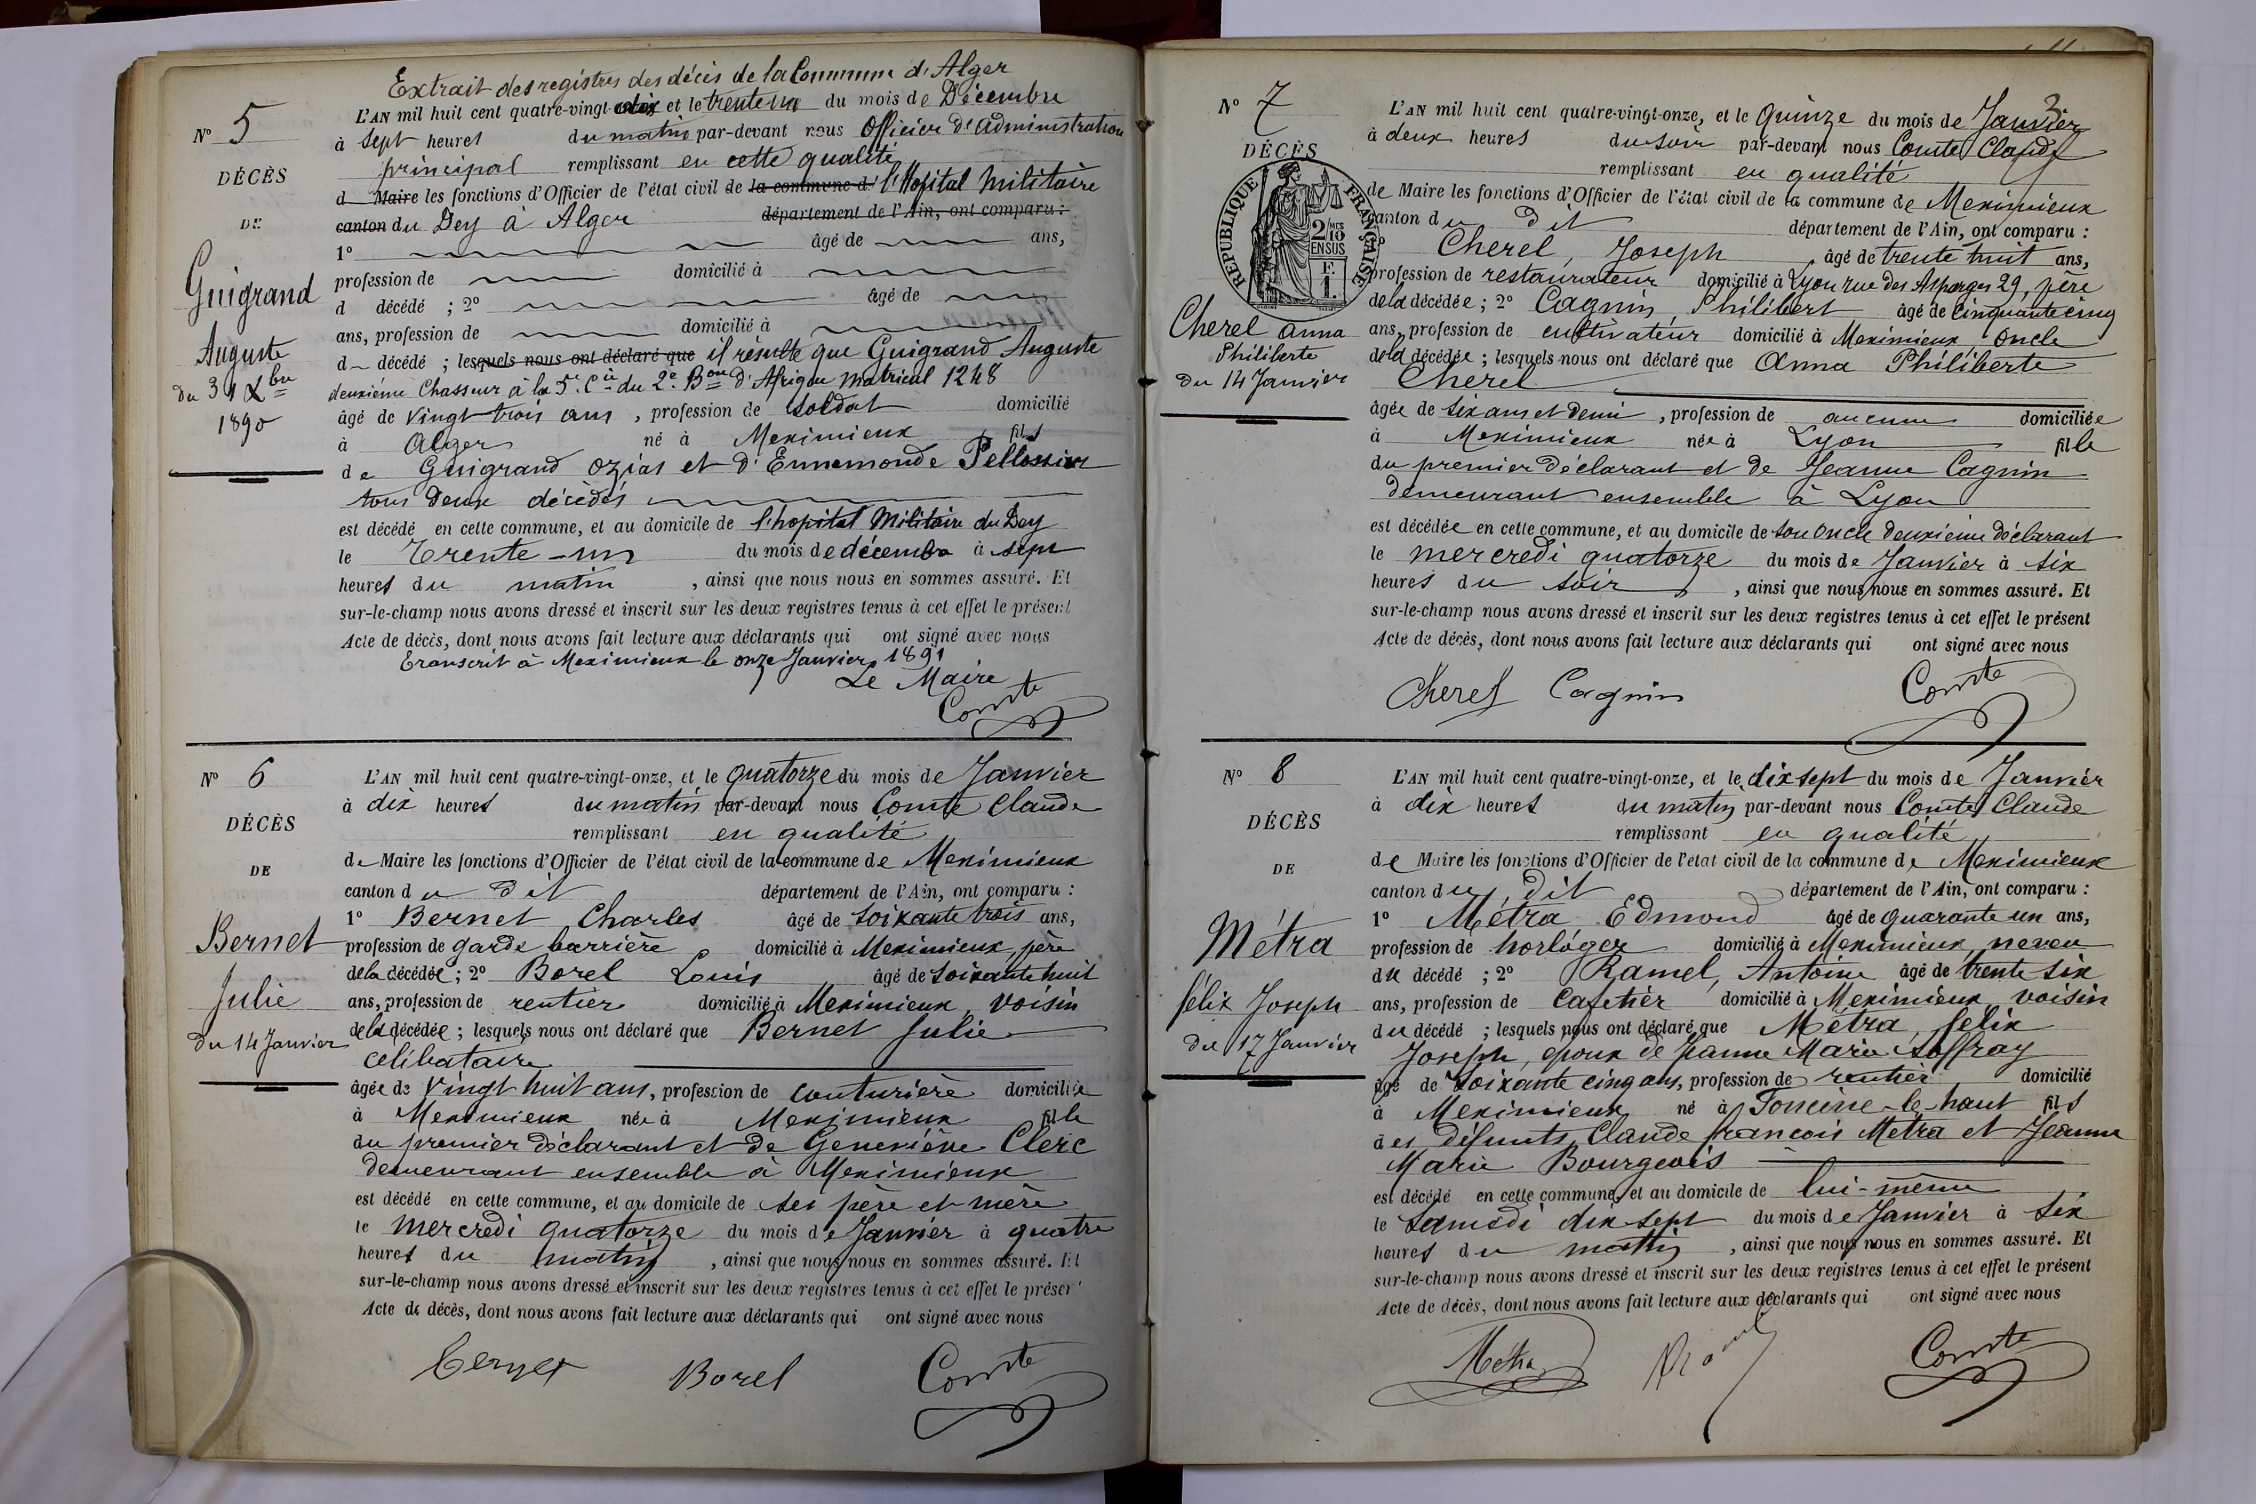 Extrait des registres des décès de la Commune d'Alger
N° 5
L'AN mil huit cent quatre-vingt-dix et le trente un du mois de Décembre
à sept heures du matin par-devant nous Officier d'administration
principal remplissant en cette qualité
DÉCÈS
d Maire les fonctions d'Officier de l'état civil de la commune d' l'Hopital Militaire
DE
canton du Dey à Alger département de l'Ain, ont comparu :
1° âgé de ans,
Guigrand
profession de domicilié à
d décédé ; 2° âgé de
Auguste
ans, profession de domicilié à
d décédé ; lesquels nous ont déclaré que il résulte que Guigrand Auguste
du 31 Xbre
deuxième Chasseur à la 5e Cie du 2e Bon d'Afrique Matricul 1248
1890
âgé de vingt trois ans, profession de soldat domicilié
à Alger né à Meximieux fils
de Guigrand Ozias et d'Ennemonde Pellossier
tous deux décédés
est décédé en cette commune, et au domicile de l'hopital Militaire du Dey
le Trente-un du mois de décembre à sept
heures du matin, ainsi que nous nous en sommes assuré. Et
sur-le-champ nous avons dressé et inscrit sur les deux registres tenus à cet effet le présent
Acte de décès, dont nous avons fait lecture aux déclarants qui ont signé avec nous
Transcrit à Meximieux le onze Janvier 1891
Le Maire
Comte
N° 6
L'AN mil huit cent quatre-vingt-onze, et le quatorze du mois de Janvier
à dix heures du matin par-devant nous Comte Claude
DÉCÈS
remplissant en qualité
de Maire les fonctions d'Officier de l'état civil de la commune de Meximieux
DE
canton du dit département de l'Ain, ont comparu :
1° Bernet Charles âgé de soixante trois ans,
Bernet
profession de garde barrière domicilié à Meximieux, père
de la décédée ; 2° Borel Louis âgé de soixante huit
Julie
ans, profession de rentier domicilié à Meximieux voisin
du 14 Janvier
de la décédée ; lesquels nous ont déclaré que Bernet Julie
célibataire
âgée de vingt huit ans, profession de couturière domiciliée
à Meximieux née à Meximieux fille
du premier déclarant et de Geneviève Clerc
demeurant ensemble à Meximieux
est décédé en cette commune, et au domicile de ses père et mère
le mercredi quatorze du mois de Janvier à quatre
heures du matin, ainsi que nous nous en sommes assuré. Et
sur-le-champ nous avons dressé et inscrit sur les deux registres tenus à cet effet le présent
Acte de décès, dont nous avons fait lecture aux déclarants qui ont signé avec nous
Bernet Borel Comte
3
N° 7
L'AN mil huit cent quatre-vingt-onze, et le quinze du mois de Janvier
à deux heures du soir par-devant nous Comte Claude
DÉCÈS
remplissant en qualité
de Maire les fonctions d'Officier de l'état civil de la commune de Meximieux
RÉPUBLIQUE FRANÇAISE
2/10MES
EN SUS
F.
1.
canton du dit département de l'Ain, ont comparu :
Cherel, Joseph âgé de trente huit ans,
profession de restaurateur domicilié à Lyon rue des Asperges 29, père
de la décédée ; 2° Cagnin, Philibert âgé de cinquante cinq
Cherel Anna
ans, profession de cultivateur domicilié à Meximieux, oncle
Philiberte
de la décédée ; lesquels nous ont déclaré que Anna Philiberte
du 14 Janvier
Cherel
âgée de six ans et demi, profession de aucune domiciliée
à Meximieux née à Lyon fille
du premier déclarant et de Jeanne Cagnin
demeurant ensemble à Lyon
est décédée en cette commune, et au domicile de son oncle deuxième déclarant
le mercredi quatorze du mois de Janvier à six
heures du soir, ainsi que nous nous en sommes assuré. Et
sur-le-champ nous avons dressé et inscrit sur les deux registres tenus à cet effet le présent
Acte de décès, dont nous avons fait lecture aux déclarants qui ont signé avec nous
Cherel Cagnin Comte
N° 8
L'AN mil huit cent quatre-vingt-onze, et le dix sept du mois de Janvier
à dix heures du matin par-devant nous Comte Claude
DÉCÈS
remplissant en qualité
de Maire les fonctions d'Officier de l'état civil de la commune de Meximieux
DE
canton du dit département de l'Ain, ont comparu :
1° Métra Edmond âgé de quarante un ans,
Métra
profession de horloger domicilié à Meximieux, neveu
du décédé ; 2° Ramel, Antoine âgé de trente six
félix Joseph
ans, profession de cafetier domicilié à Meximieux voisin
du 17 Janvier
du décédé ; lesquels nous ont déclaré que Métra, felix
Joseph, époux de Jeanne Marie Soffray
âgé de soixante cinq ans, profession de rentier domicilié
à Meximieux né à Foncine-le-haut fils
des défunts Claude françois Métra et Jeanne
Marie Bourgeois
est décédé en cette commune, et au domicile de lui-même
le Samedi dix sept du mois de Janvier à six
heures du matin, ainsi que nous nous en sommes assuré. Et
sur-le-champ nous avons dressé et inscrit sur les deux registres tenus à cet effet le présent
Acte de décès, dont nous avons fait lecture aux déclarants qui ont signé avec nous
Métra Comte